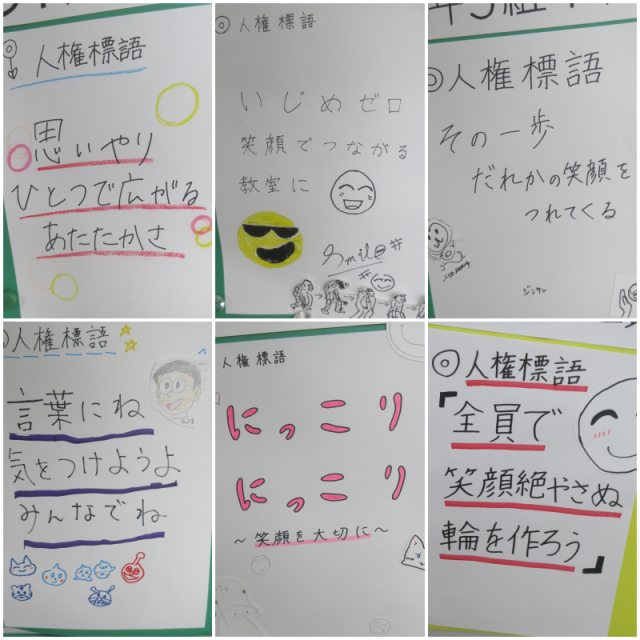 ◎人権標語
思いやり
ひとつで広がる
あたたかさ
◎人権標語
いじめゼロ
笑顔でつながる
教室に
Smile
年5組
◎人権標語
その一歩
だれかの笑顔を
つれてくる
ジンケン
◎人権標語
言葉にね
気をつけようよ
みんなでね
人権標語
にっこり
にっこり
～笑顔を大切に～
◎人権標語
「全員で
笑顔絶やさぬ
輪を作ろう」